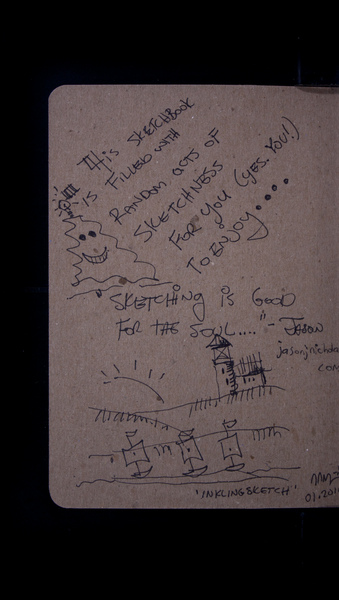 THiS SKETCHBOOK
iS FiLLED WiTH
RANDOM ACTS OF
SKETCHNESS
FOR YOU (YES. YOU!)
TO ENJOY.....
SKETCHiNG iS GOOD
FOR THE SOUL...." - JASON
com
"INKLINGSKETCH"